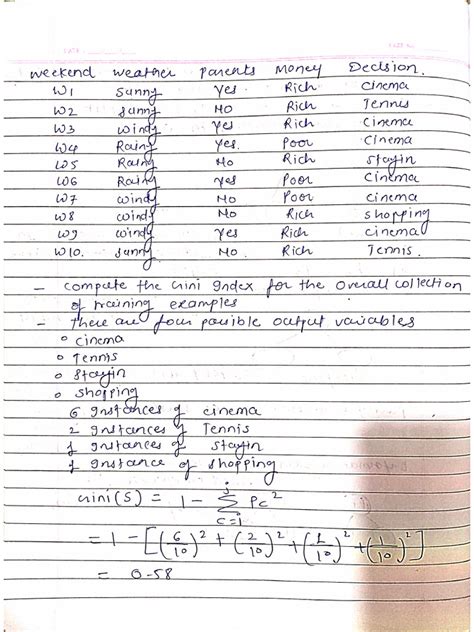 weekend weather parents Money Decision.
W1 Sunny Yes Rich Cinema
W2 Sunny No Rich Tennis
W3 windy Yes Rich Cinema
W4 Rainy Yes. Poor Cinema
W5 Rainy No Rich Stayin
W6 Rainy Yes Poor Cinema
W7 windy No Poor cinema
W8 windy No Rich shopping
W9 windy Yes Rich cinema
W10. Sunny No. Rich Tennis.
- compute the Gini Index for the overall collection
of training examples
- There are four possible output variables
o cinema
o Tennis
o Stayin
o shopping
6 Instances of cinema
2 Instances of Tennis
1 Instances of Stayin
1 Instance of shopping
Gini(S) = 1 - j∑c=1 Pc²
= 1 - [(6/10)² + (2/10)² + (1/10)² + (1/10)²]
= 0.58